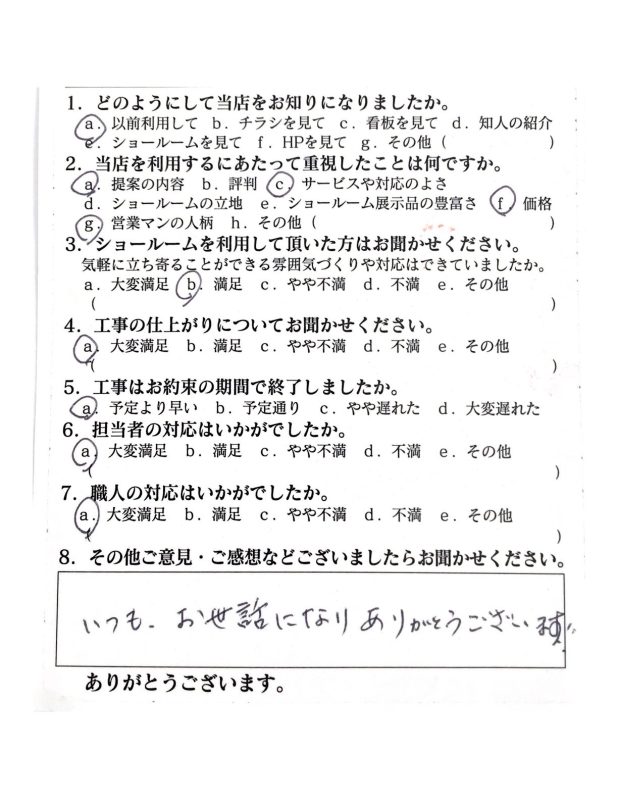 1．どのようにして当店をお知りになりましたか。
a．以前利用して b．チラシを見て c．看板を見て d．知人の紹介
e．ショールームを見て f．HPを見て g．その他（　　　　　　）
2．当店を利用するにあたって重視したことは何ですか。
a．提案の内容 b．評判 c．サービスや対応のよさ
d．ショールームの立地 e．ショールーム展示品の豊富さ f．価格
g．営業マンの人柄 h．その他（　　　　　　）
3．ショールームを利用して頂いた方はお聞かせください。
気軽に立ち寄ることができる雰囲気づくりや対応はできていましたか。
a．大変満足 b．満足 c．やや不満 d．不満 e．その他
（　　　　　　）
4．工事の仕上がりについてお聞かせください。
a．大変満足 b．満足 c．やや不満 d．不満 e．その他
（　　　　　　）
5．工事はお約束の期間で終了しましたか。
a．予定より早い b．予定通り c．やや遅れた d．大変遅れた
6．担当者の対応はいかがでしたか。
a．大変満足 b．満足 c．やや不満 d．不満 e．その他
（　　　　　　）
7．職人の対応はいかがでしたか。
a．大変満足 b．満足 c．やや不満 d．不満 e．その他
（　　　　　　）
8．その他ご意見・ご感想などございましたらお聞かせください。
いつも、お世話になりありがとうござい
ありがとうございます。